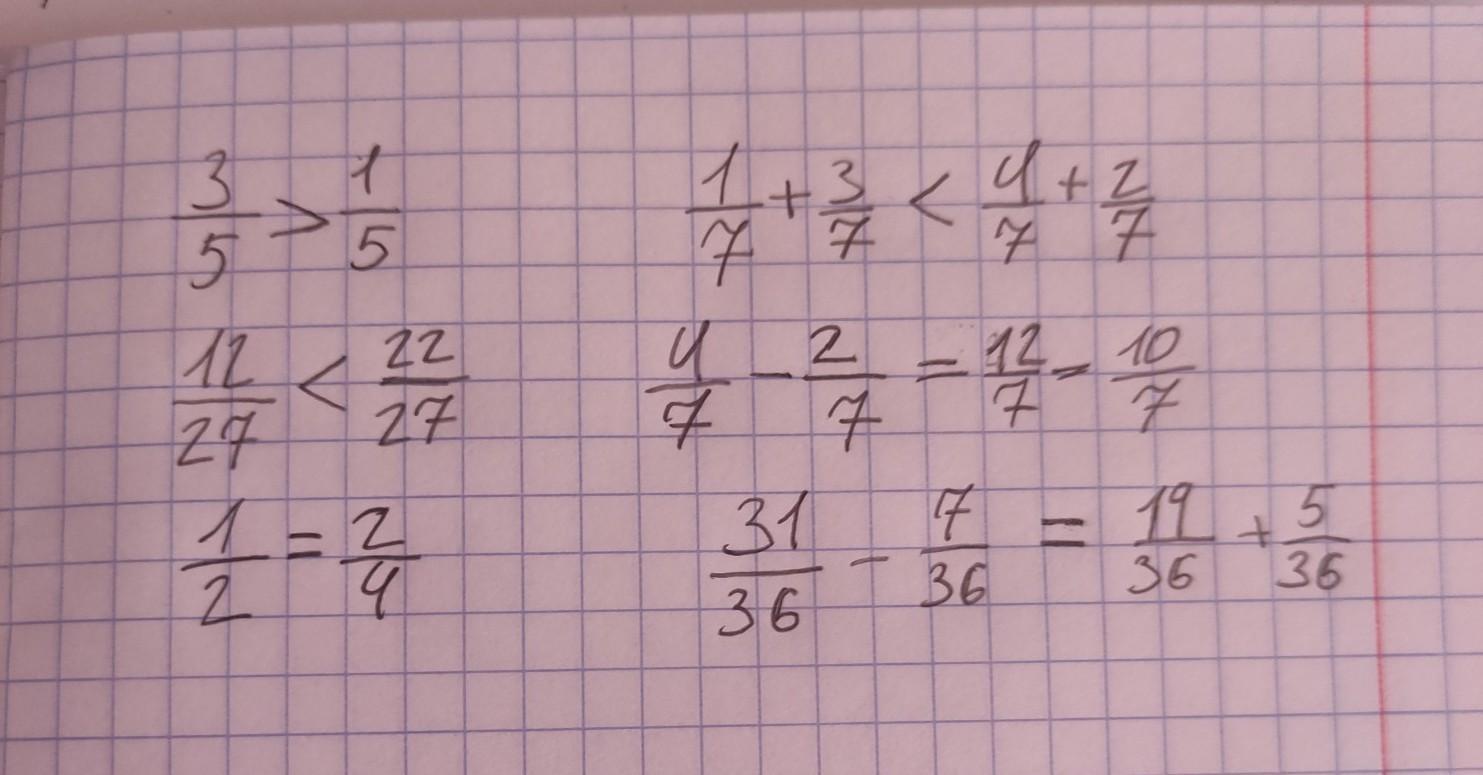 3/5 > 1/5    1/7 + 3/7 < 4/7 + 2/7
12/27 < 22/27    4/7 - 2/7 = 12/7 - 10/7
1/2 = 2/4    31/36 - 7/36 = 19/36 + 5/36